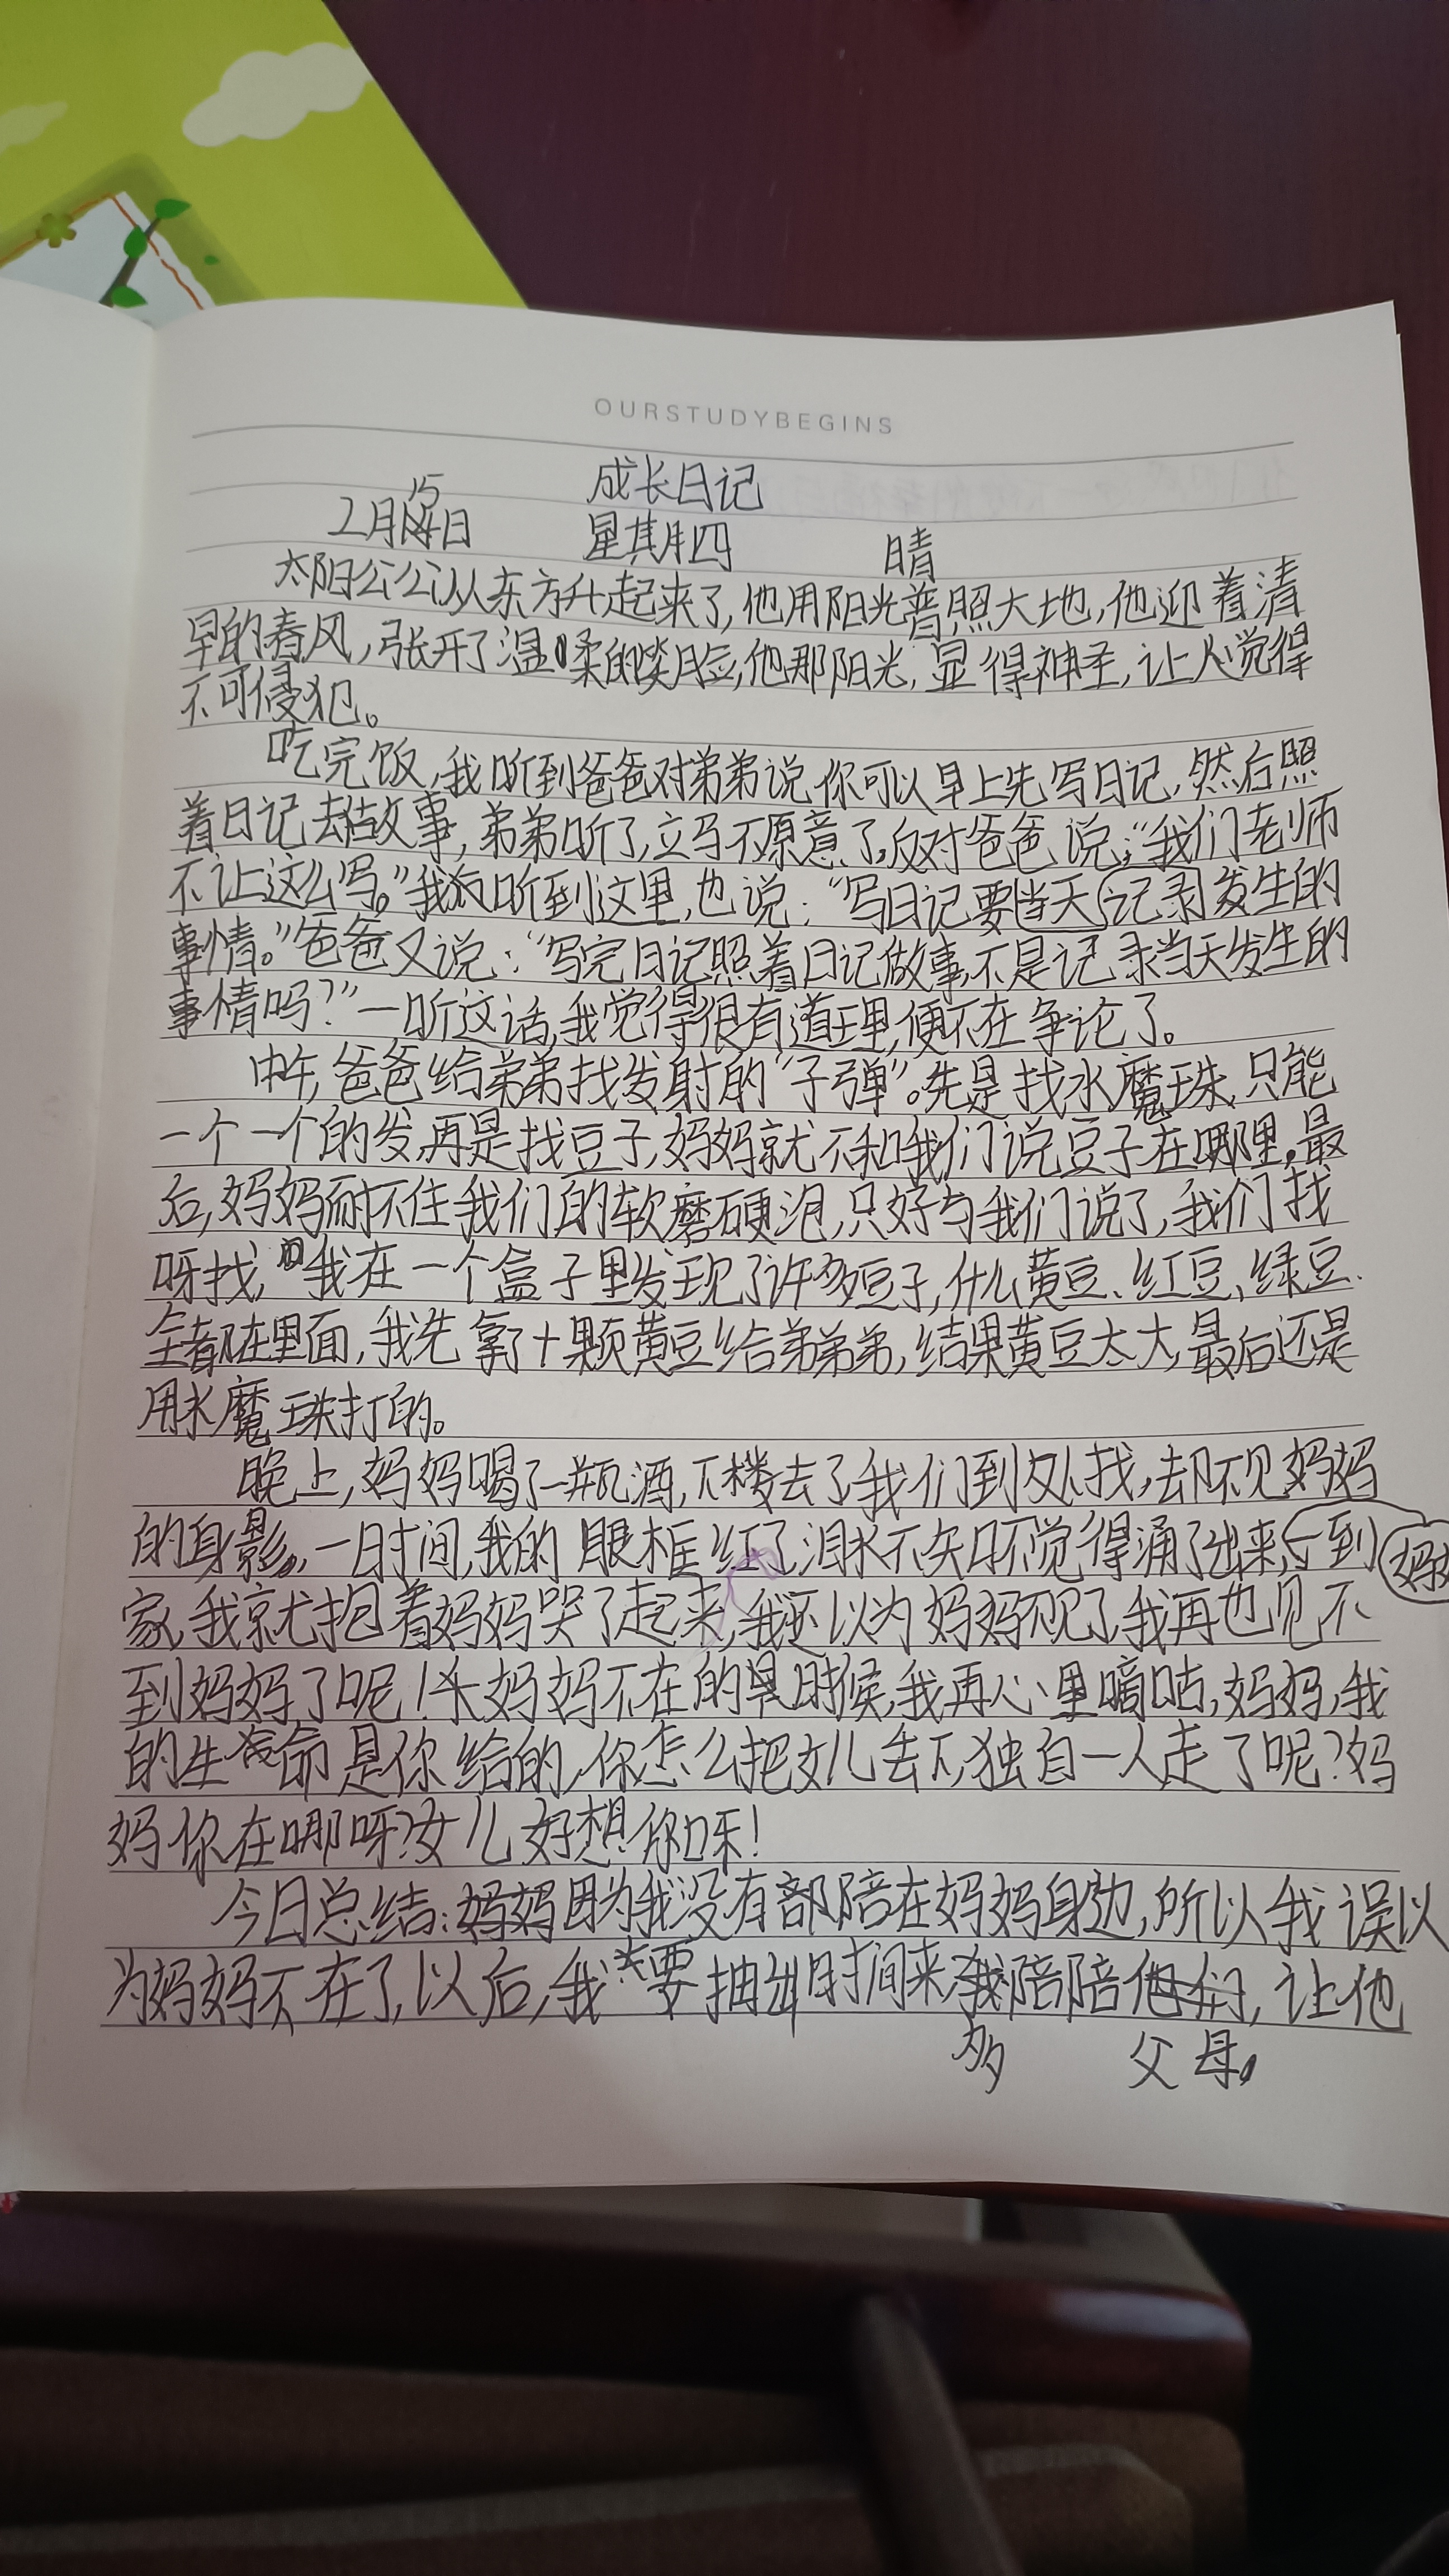 OURSTUDYBEGINS
成长日记
2月15日 星期四 晴
太阳公公从东方升起来了,他用阳光普照大地,他迎着清
早的春风,张开了温柔的笑脸,他那阳光,显得神圣,让人觉得
不可侵犯。
吃完饭,我听到爸爸对弟弟说你可以早上先写日记,然后照
着日记去做故事,弟弟听了,立马不愿意了,反对爸爸说:“我们老师
不让这么写。”我听到这里,也说:“写日记要当天记录发生的
事情。”爸爸又说:“写完日记照着日记做事,不是记录当天发生的
事情吗?”一听这话,我觉得很有道理,便不在争论了。
中午,爸爸给弟弟找发射的“子弹”。先是找水魔珠,只能
一个一个的发,再是找豆子,妈妈就不和我们说豆子在哪里,最
后,妈妈耐不住我们的软磨硬泡,只好与我们说了,我们找
呀找,我在一个盒子里发现了许多豆子,什么黄豆、红豆、绿豆、
全都在里面,我先拿了十颗黄豆给弟弟弟,结果黄豆太大,最后还是
用水魔珠打的。
晚上,妈妈喝了一瓶酒,下楼去了我们到处找,却不见妈妈
的身影,一时间,我的眼框红了,泪水不知不觉得涌了出来,一到
妈妈
家,我就抱着妈妈哭了起来,我还以为妈妈不见了,我再也见不
到妈妈了呢!妈妈不在的时候,我再心里嘀咕,妈妈,我
的生命是你给的,你怎么把女儿丢下,独自一人走了呢?妈
妈你在哪呀?女儿好想你呀!
今日总结:因为我没有部陪在妈妈身边,所以我误以
为妈妈不在了,以后,我要抽出时间来陪陪他们,让他
多 父母。